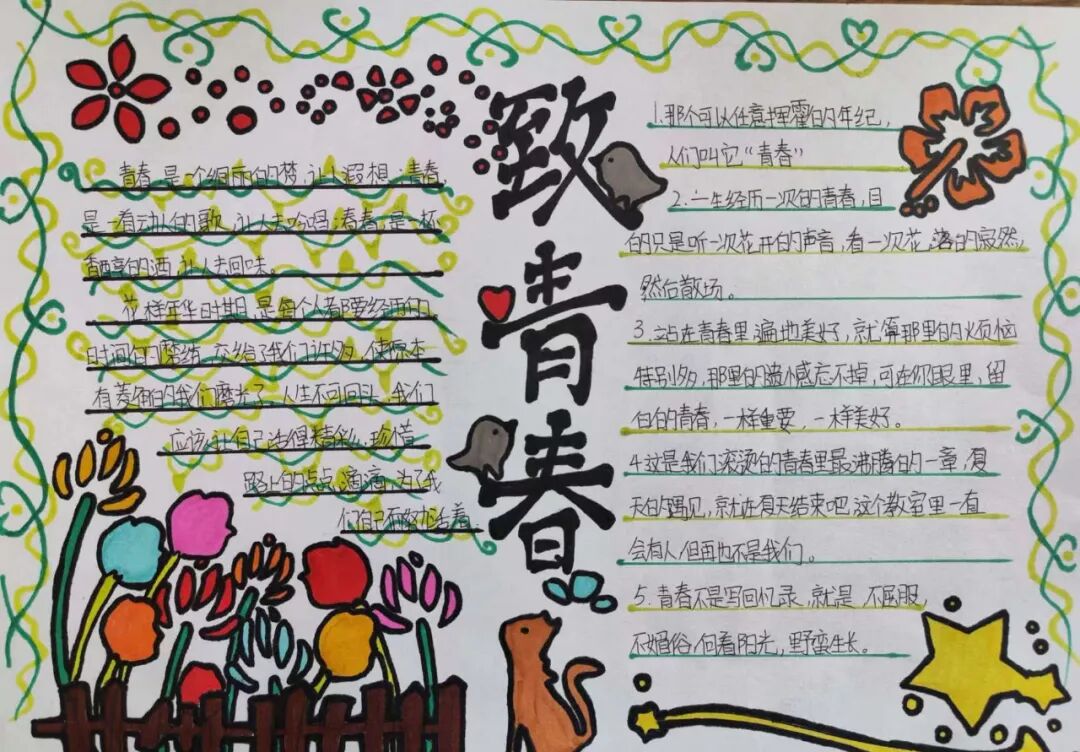 致青春
青春是一个绚丽的梦,让人遐想;青春
是一首动人的歌,让人去吟唱;青春是一杯
香醇的酒,让人去回味。
花样年华时期,是每个人都要经历的。
时间的磨练,交给了我们许多,使原本
有菱角的我们磨光了,人生不可回头,我们
应该让自己活得精彩,珍惜
路上的点点滴滴,为了我
们自己而努力活着
1.那个可以任意挥霍的年纪,
人们叫它“青春”
2.一生经历一次的青春,目
的只是听一次花开的声音,看一次花落的寂然,
然后散场。
3.站在青春里,遍地美好,就算那里的烦恼
特别多,那里的遗憾忘不掉,可在你眼里,留
白的青春,一样重要,一样美好。
4.这是我们滚烫的青春里最沸腾的一章,夏
天的遇见,就在夏天结束吧,这个教室里一直
会有人但再也不是我们。
5.青春不是写回忆录,就是 不屈服,
不媚俗,向着阳光,野蛮生长。